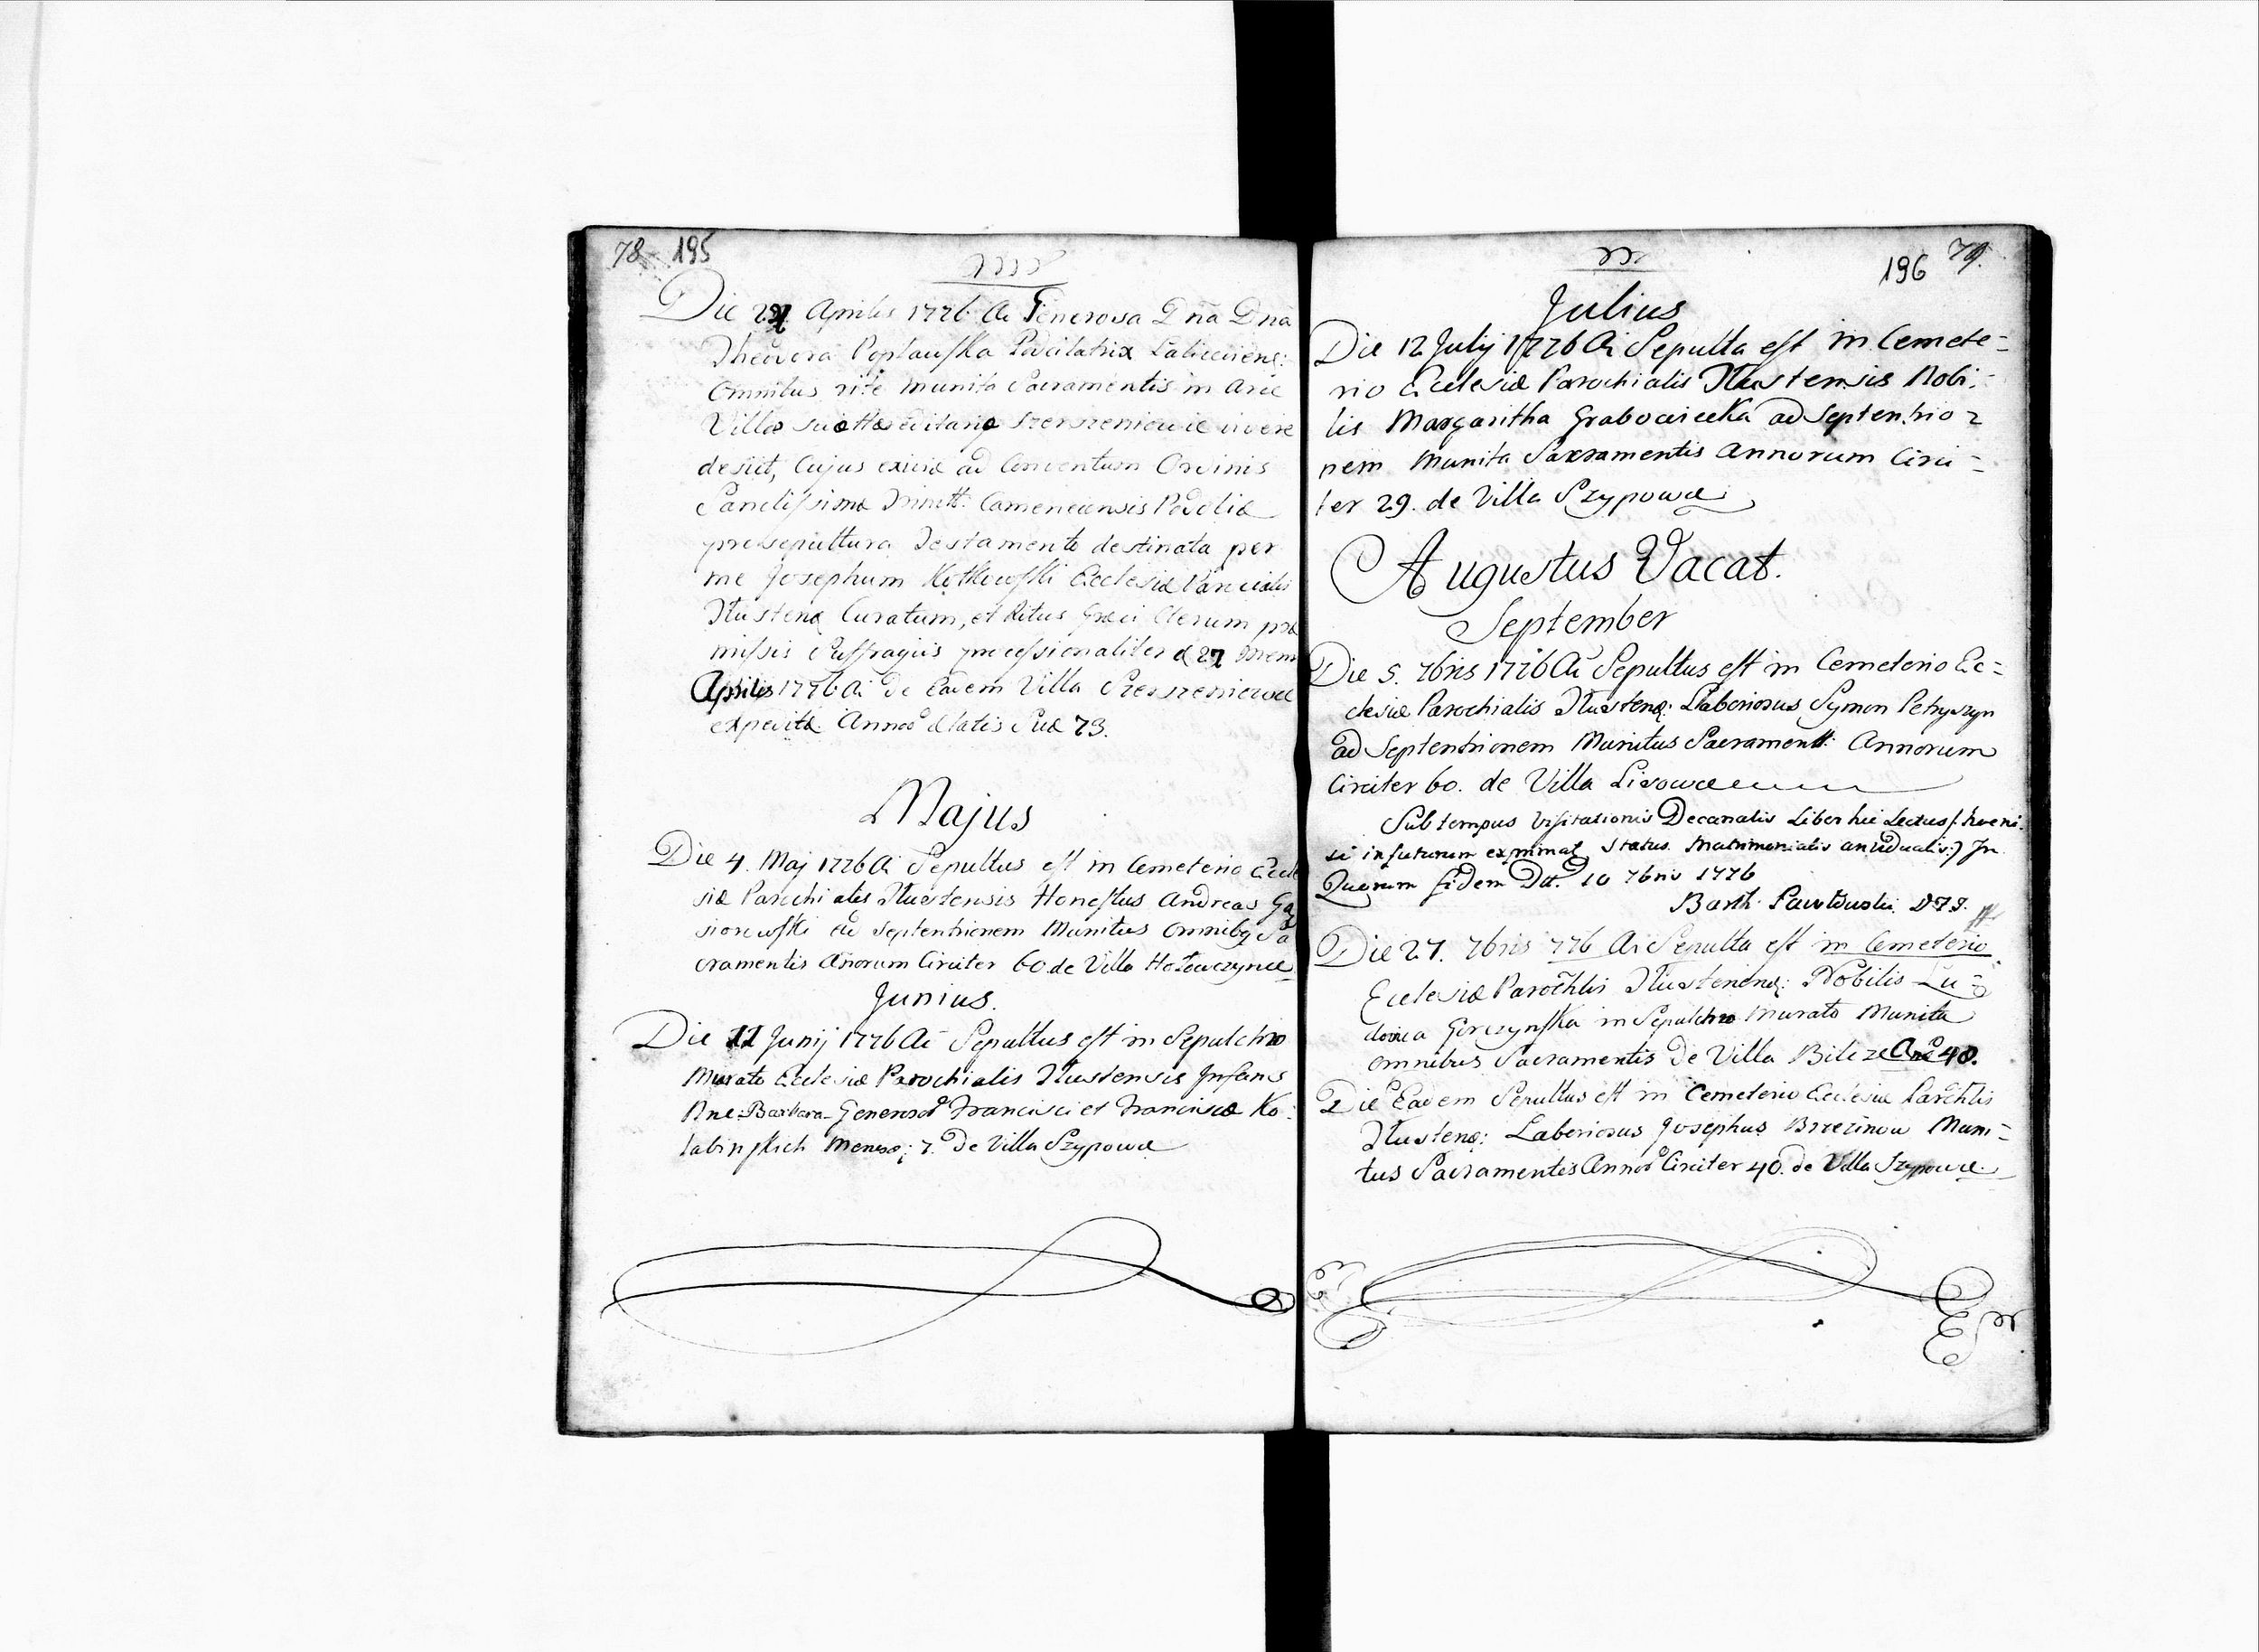 78 195
Die 24 Aprilis 1776 Ai Generosa Dna Dna
Theodora Poplauska Pocilatrix Laticciens:
Omnibus rite munita Sacramentis in Arce
Villæ suæ Hæreditariæ Szerszeniewie vivere
desiit, Cujus exuviæ ad Conventum Ordinis
Sanctissimæ Trinitt: Camenecensis Podoliæ
pro sepulttura Testamento destinata per
me Josephum Kotkowski Ecclesiæ Parochialis
Tłustenæ Curatum, et Ritus Græci Clerum præ
missis Suffragiis processionaliter d 27
Aprilis 1776 Ai de Eadem Villa Szerszeniowce
expedita. Annor ætatis Suæ 73.
Majus
Die 4. Maj 1776 Ai Sepultus est in Cemeterio Eccle
siæ Parochialis Tłustensis Honestus Andreas Gą
siorowski ad Septentrionem Munitus Omnibq Sa
cramentis Anorum Circiter 60 de Villa Hołowczynce
Junius.
Die 11 Junij 1776 Ai Sepultus est in Sepulchro
Murato Ecclesiæ Parochialis Tłustensis Infans
Nne: Barbara Generosor Francisci et Franciscæ Ko:
labinskich Mensq; 7. de Villa Szypowce
196 79.
Julius
Die 12 Julij 1776 Ai Sepulta est in Cemete=
rio Ecclesiæ Parochialis Tłustensis Nobi=
lis Margaritha Grabowiecka ad Septentrio=
nem Munita Sacramentis Annorum Circi=
ter 29. de Villa Szypowce
Augustus Vacat.
September
Die 5. 7bris 1776 Ai Sepultus est in Cemeterio Ec=
clesiæ Parochialis Tłustenq: Laboriosus Symon Petryszyn
ad Septentrionem Munitus Sacramentt: Annorum
Circiter 60. de Villa Lisowce
Sub tempus Visitationis Decanalis Liber hic Lectus
si in futurum exprimat Status Matrimonialis an viDualis:) In
Quorum fidem Dtt. 10 7bris 1776
Barth: Pawłowski
Die 27. 7bris 776 Ai Sepulta est in Cemeterio
Ecclesiæ Parochlis Tłustenenq: Nobilis Lu=
dovica Gorczynska in Sepulchro Murato Munita
Omnibus Sacramentis de Villa Bilcze Ano 40.
Die Eadem Sepultus est in Cemeterio Ecclesiæ Parchlis
Tłustenq: Laboriosus Josephus Brzezinow Muni=
tus Sacramentis Annor Circiter 40. de Villa Szypowce